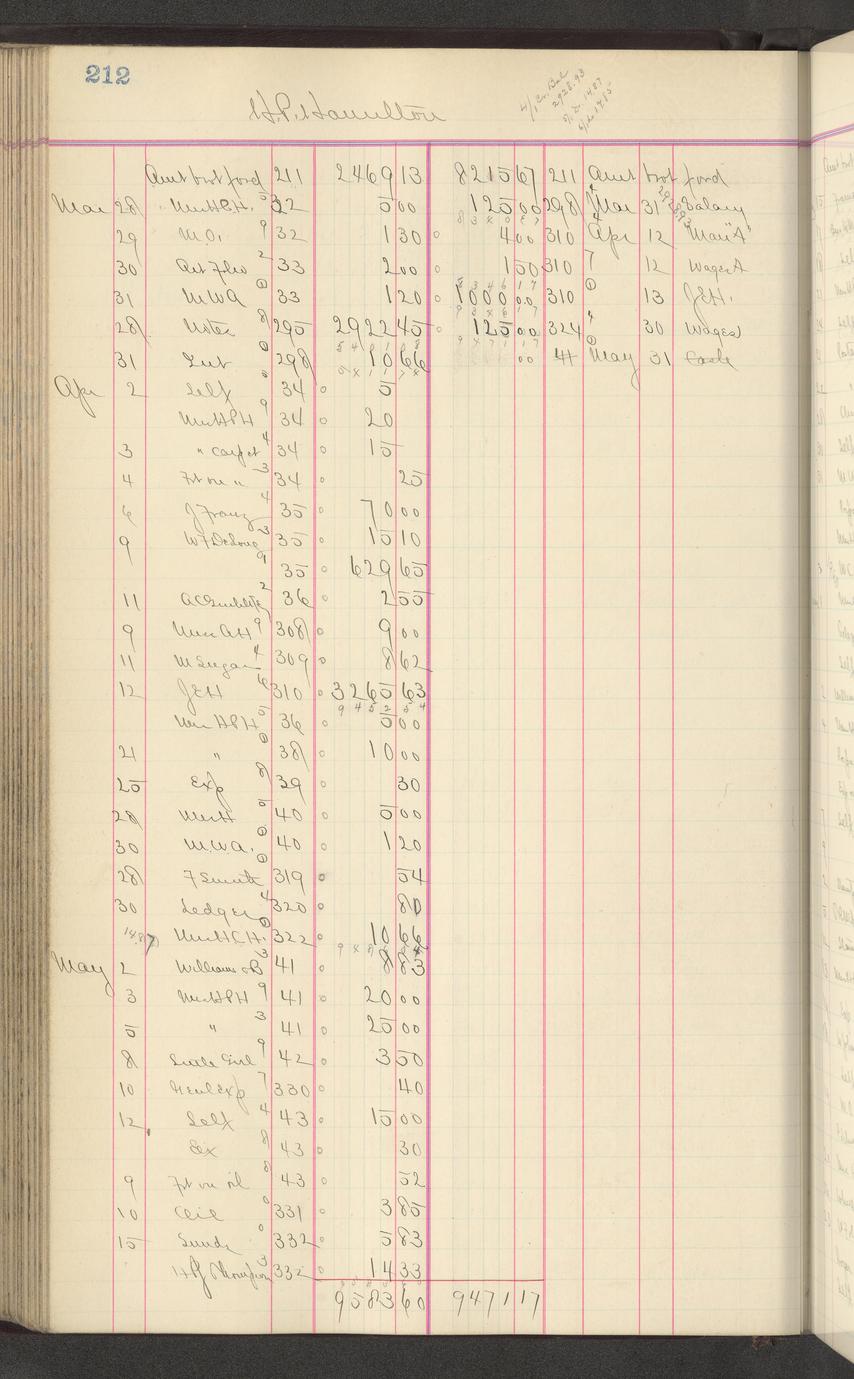 212
H.P. Hamilton
4/1 Cr. Bal
2928.93
Amt brot ford 211 2469 13 8215 67 211 Amt brot ford
Mar 28 Mrs H.P.H. 32 5 00 125 00 298 Mar 31 Salary
29 M.O. 32 1 30 4 00 310 Apr 12 Mary "A"
30 33 2 00 1 50 310 12 Wages A
31 M.W.A 33 1 20 1000 00 310 13 J.E.H.
28 Notes 295 2922 45 125 00 324 " 30 Wages
31 Int 298 10 66 00 41 May 31 Cash
Apr 2 Self 34 5
Mrs H P H 34 20
3 " Carpet 34 15
4 Frt on " 34 25
6 J Franz 35 70 00
9 W F DeLong 35 15 10
35 629 65
11 36 2 55
9 Mrs A H 308 9 00
11 M Sugar 309 8 62
12 J E H 310 3265 63
Mrs H P H 36 5 00
21 " 38 10 00
25 Exp 39 30
28 Mrs H 40 5 00
30 M.W.A. 40 1 20
28 F Smith 319 54
30 Ledger 320 80
14.87 Mrs H.P.H. 322 10 66
May 2 Williams & B 41 8 83
3 Mrs H P H 41 20 00
5 " 41 25 00
8 Little Girl 42 3 50
10 Exp 330 40
12 Self 43 15 00
Ex 43 30
9 Frt on oil 43 52
10 331 3 85
15 Sundr 332 5 83
H J Thompson 332 14 33
9583 60 9471 17